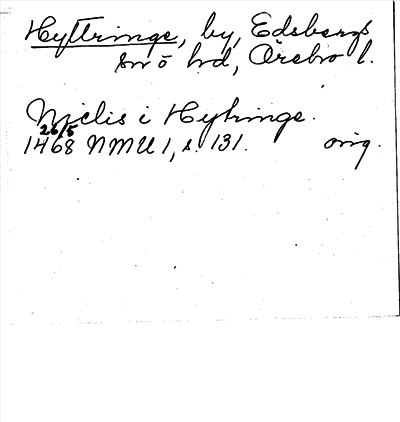 Hyttringe, by, Edsbergs
sn o hd, Örebro l.
Njclis i Hytringe.
26/5
1468 NMU 1, s. 131. orig.